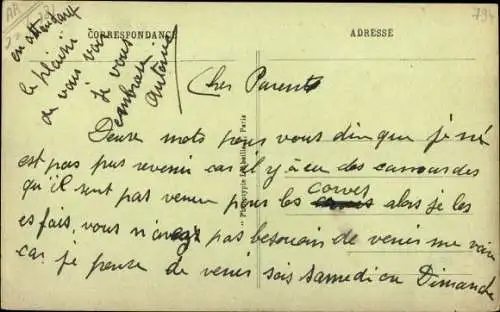 CORRESPONDANCE
ADRESSE
Cher Parents
Deux mots pour vous dir que je né
est pas pus revenir car il y à eu des camarades
qu'il sont pas venus pour les corves alors je les
es fais, vous n'avez pas besouain de venir me voir
car je pense de venir sois samedi ou Dimanche
en attendant
le plaisir
de vous voir
Je vous
embrasse
Antoine
Phototypie
Paris